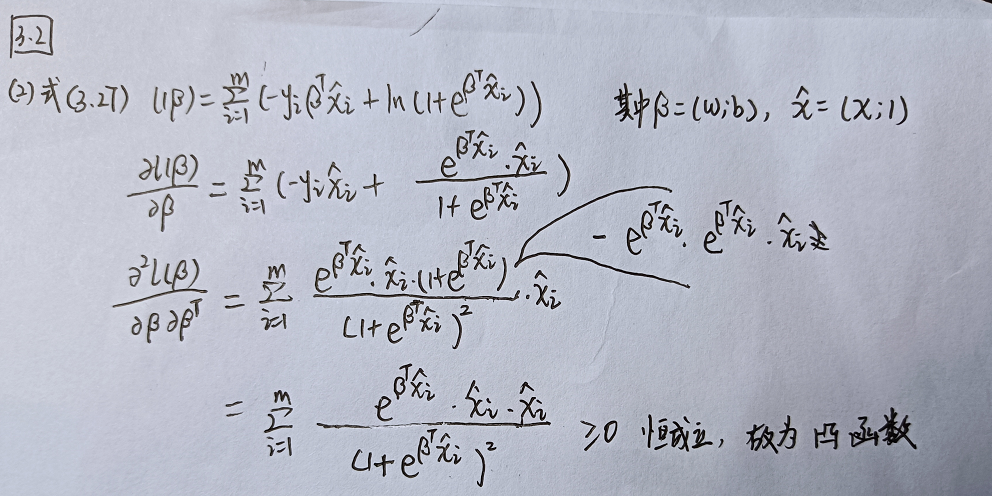 3.2
(2) 式(3.27) l(β) = ∑_{i=1}^{m} (-y_i β^T x̂_i + ln(1+e^{β^T x̂_i})) 其中β=(w;b), x̂=(x;1)
∂l(β)/∂β = ∑_{i=1}^{m} (-y_i x̂_i + (e^{β^T x̂_i} · x̂_i)/(1+e^{β^T x̂_i}))
- e^{β^T x̂_i} · e^{β^T x̂_i} · x̂_i
∂²l(β)/∂β∂β^T = ∑_{i=1}^{m} (e^{β^T x̂_i} · x̂_i · (1+e^{β^T x̂_i}))/(1+e^{β^T x̂_i})² · x̂_i
= ∑_{i=1}^{m} (e^{β^T x̂_i} · x̂_i · x̂_i)/(1+e^{β^T x̂_i})² ≥0 恒成立, 故为凸函数